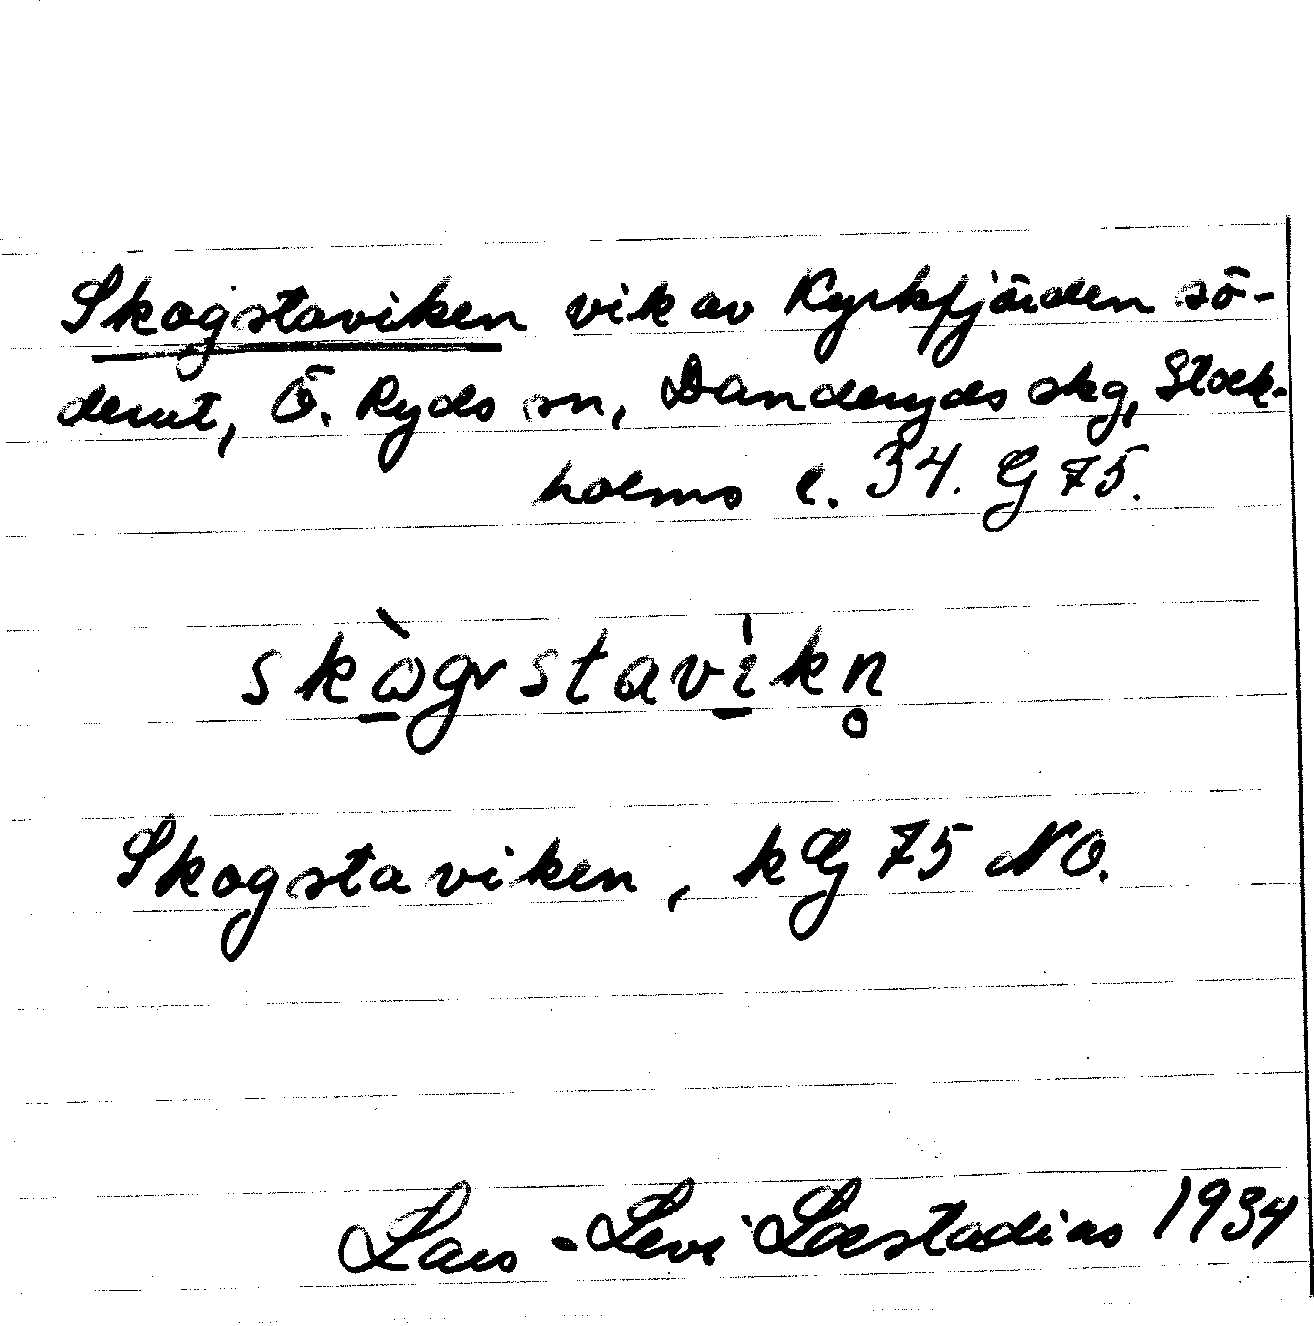 Skogstaviken vik av Kyrkfjärden sö-
derut, Ö. Ryds sn, Danderyds skg, Stock-
holms l. 34. G 75.
skògrstavikn̥
Skogstaviken, kG 75 NO.
Lars-Levi Læstadius 1934